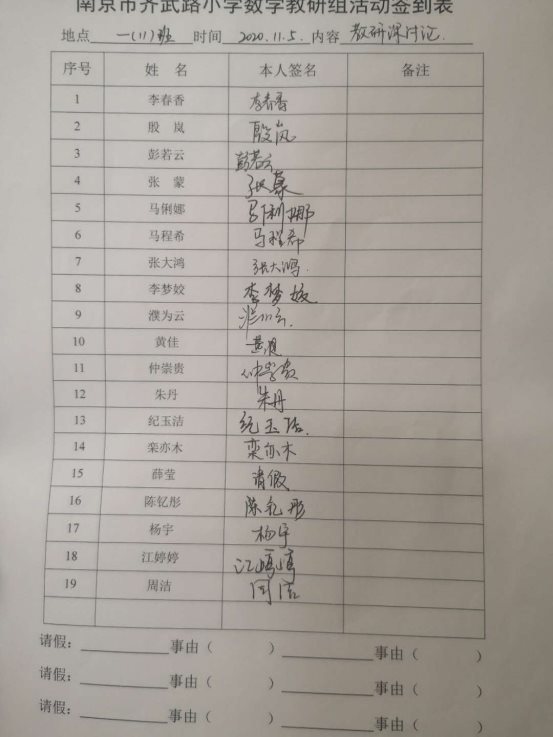 南京市齐武路小学数学教研组活动签到表
地点 一(11)班 时间 2020.11.5. 内容 教研深讨论.
序号 姓 名 本人签名 备注
1 李春香 李春香
2 殷 岚 殷岚
3 彭若云 彭若云
4 张 蒙 张蒙
5 马俐娜 马俐娜
6 马程希 马程希
7 张大鸿 张大鸿.
8 李梦姣 李梦姣
9 濮为云
10 黄佳
11 仲崇贵 仲崇贵
12 朱丹 朱丹
13 纪玉洁 纪玉洁.
14 栾亦木 栾亦木
15 薛莹 请假
16 陈钇彤 陈钇彤
17 杨宇 杨宇
18 江婷婷 江婷婷
19 周洁 周洁
请假: 事由( ) 事由( )
请假: 事由( ) 事由( )
请假: 事由( ) 事由( )